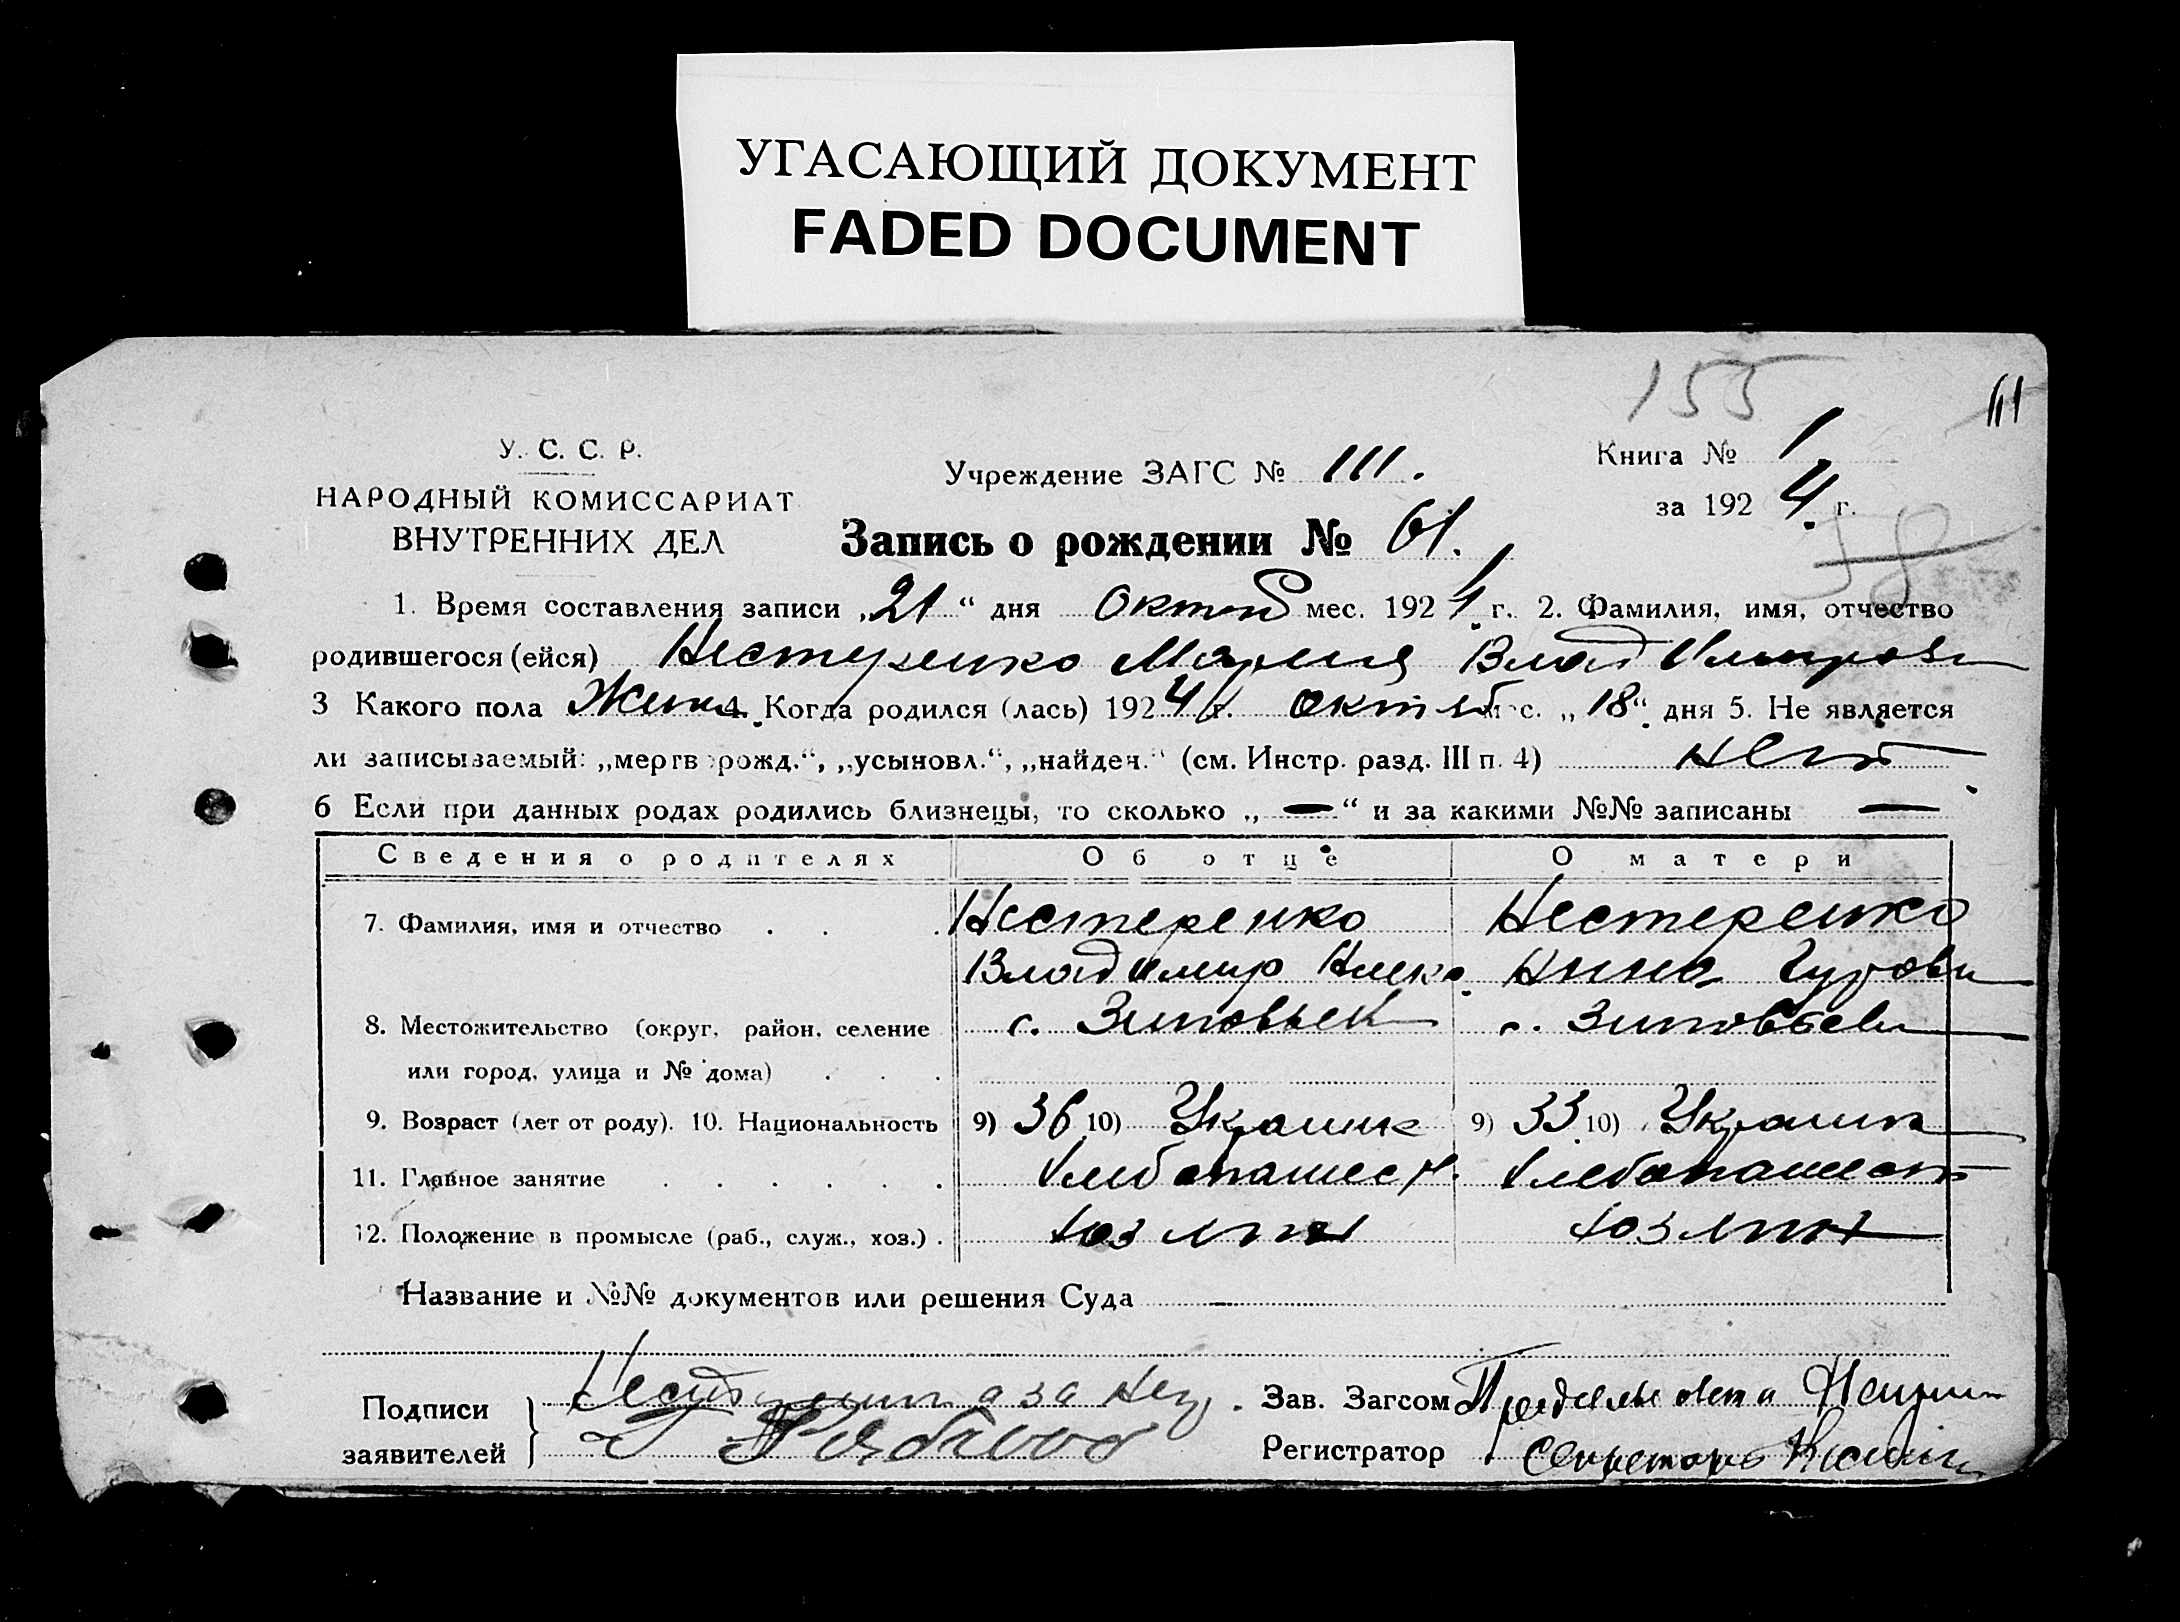 УГАСАЮЩИЙ ДОКУМЕНТ
FADED DOCUMENT
155
У. С. С. Р.
НАРОДНЫЙ КОМИССАРИАТ
ВНУТРЕННИХ ДЕЛ
Учреждение ЗАГС № 111.
Книга № 1
за 1924 г.
Запись о рождении № 61.
1. Время составления записи „21“ дня Октяб мес. 192 г. 2. Фамилия, имя, отчество
родившегося (ейся) Нестеренко Мария Владимиров
3 Какого пола Женс. 4. Когда родился (лась) 1924 г. октяб мес. „18“ дня 5. Не является
ли записываемый: „мертворожд.“, „усыновл.“, „найден.“ (см. Инстр. разд. III п. 4) нет
6 Если при данных родах родились близнецы, то сколько „—“ и за какими №№ записаны —
Сведения о родителях Об отце О матери
7. Фамилия, имя и отчество . . . Нестеренко Нестеренко
Владимир Алекс. Анна Гурови
8. Местожительство (округ, район, селение с. Зиновьев с. Зиновьев
или город, улица и № дома) . . .
9. Возраст (лет от роду). 10. Национальность 9) 36 10) Украинс 9) 33 10) Украин
11. Главное занятие . . . . . . Хлебопашест. Хлебопашест
12. Положение в промысле (раб., служ., хоз.) .
Название и №№ документов или решения Суда —
Подписи
заявителей
Зав. Загсом
Регистратор Секретарь